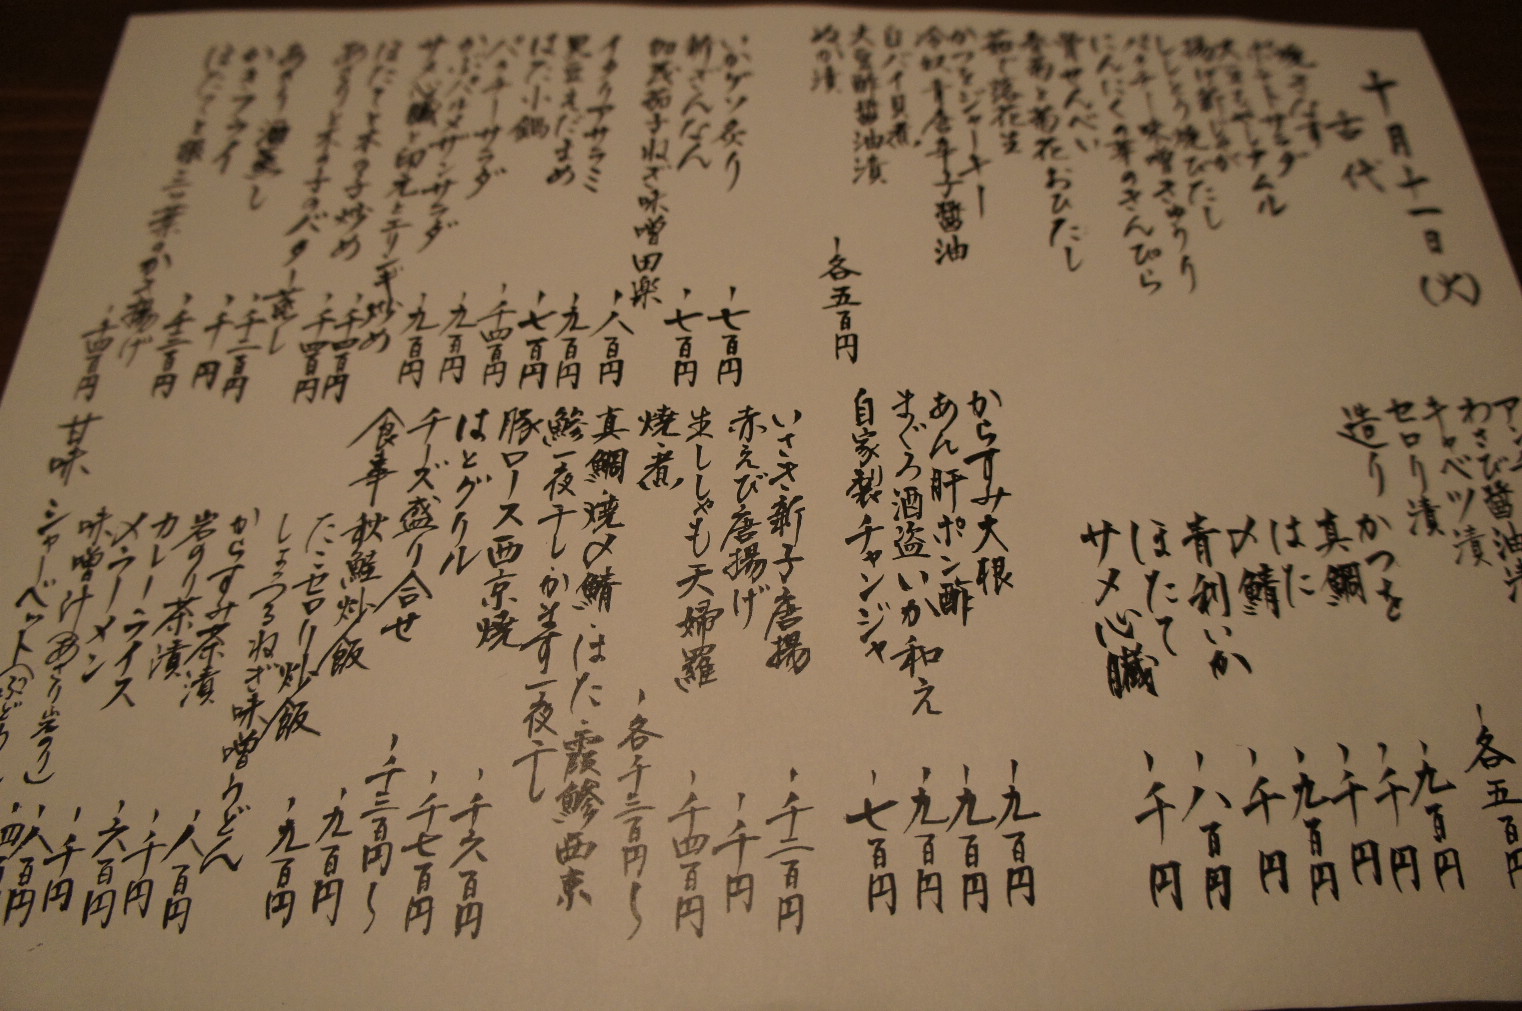 十月十一日(火)
古代
焼きなす
ポテトサラダ
大豆もやしナムル
揚げ新じゃが
ししとう焼びたし
パクチー味噌きゅうり
にんにくの芽のきんぴら
骨せんべい
春菊と菊花おひたし
茹で落花生
かつをジャーキー
冷奴青唐辛子醤油
白バイ貝煮
大豆酢醤油漬
ぬか漬
各五百円
いかゲソ炙り 七百円
新ぎんなん 七百円
加茂茄子ねぎ味噌田楽
イタリアサラミ 八百円
黒豆えだまめ 九百円
はた小鍋
パクチーサラダ
サラダ
サメ心臓と印元とエリンギ炒め
ほたてと木の子炒め
あさりと木の子のバター蒸し
あさり酒蒸し
かきフライ
ほたてと根三つ葉のかき揚げ
七百円
千四百円
九百円
九百円
千四百円
千四百円
千二百円
千円
千三百円
千四百円
わさび醤油漬
キャベツ漬
セロリ漬
各五百円
造り
かつを 九百円
真鯛 千円
はた 千円
〆鯖 九百円
青利いか 千円
ほたて 八百円
サメ心臓 千円
からすみ大根 九百円
あん肝ポン酢 九百円
まぐろ酒盗いか和え 九百円
自家製チャンジャ 七百円
いさき新子唐揚 千二百円
赤えび唐揚げ 千円
生ししゃも天婦羅 千四百円
焼・煮 各千三百円〜
真鯛・焼〆鯖・はた・霞鯵西京
鯵一夜干し・かます一夜干し
豚ロース西京焼 千六百円
はとグリル 千七百円
チーズ盛り合せ 千三百円〜
食事
秋鮭炒飯 九百円
たこセロリ炒飯 九百円
しょっつるねぎ味噌うどん
からすみ茶漬
岩のり茶漬
カレーライス
〆ラーメン
味噌汁(あさり岩のり)
八百円
千円
六百円
千円
八百円
甘味
シャーベット(ぶどう